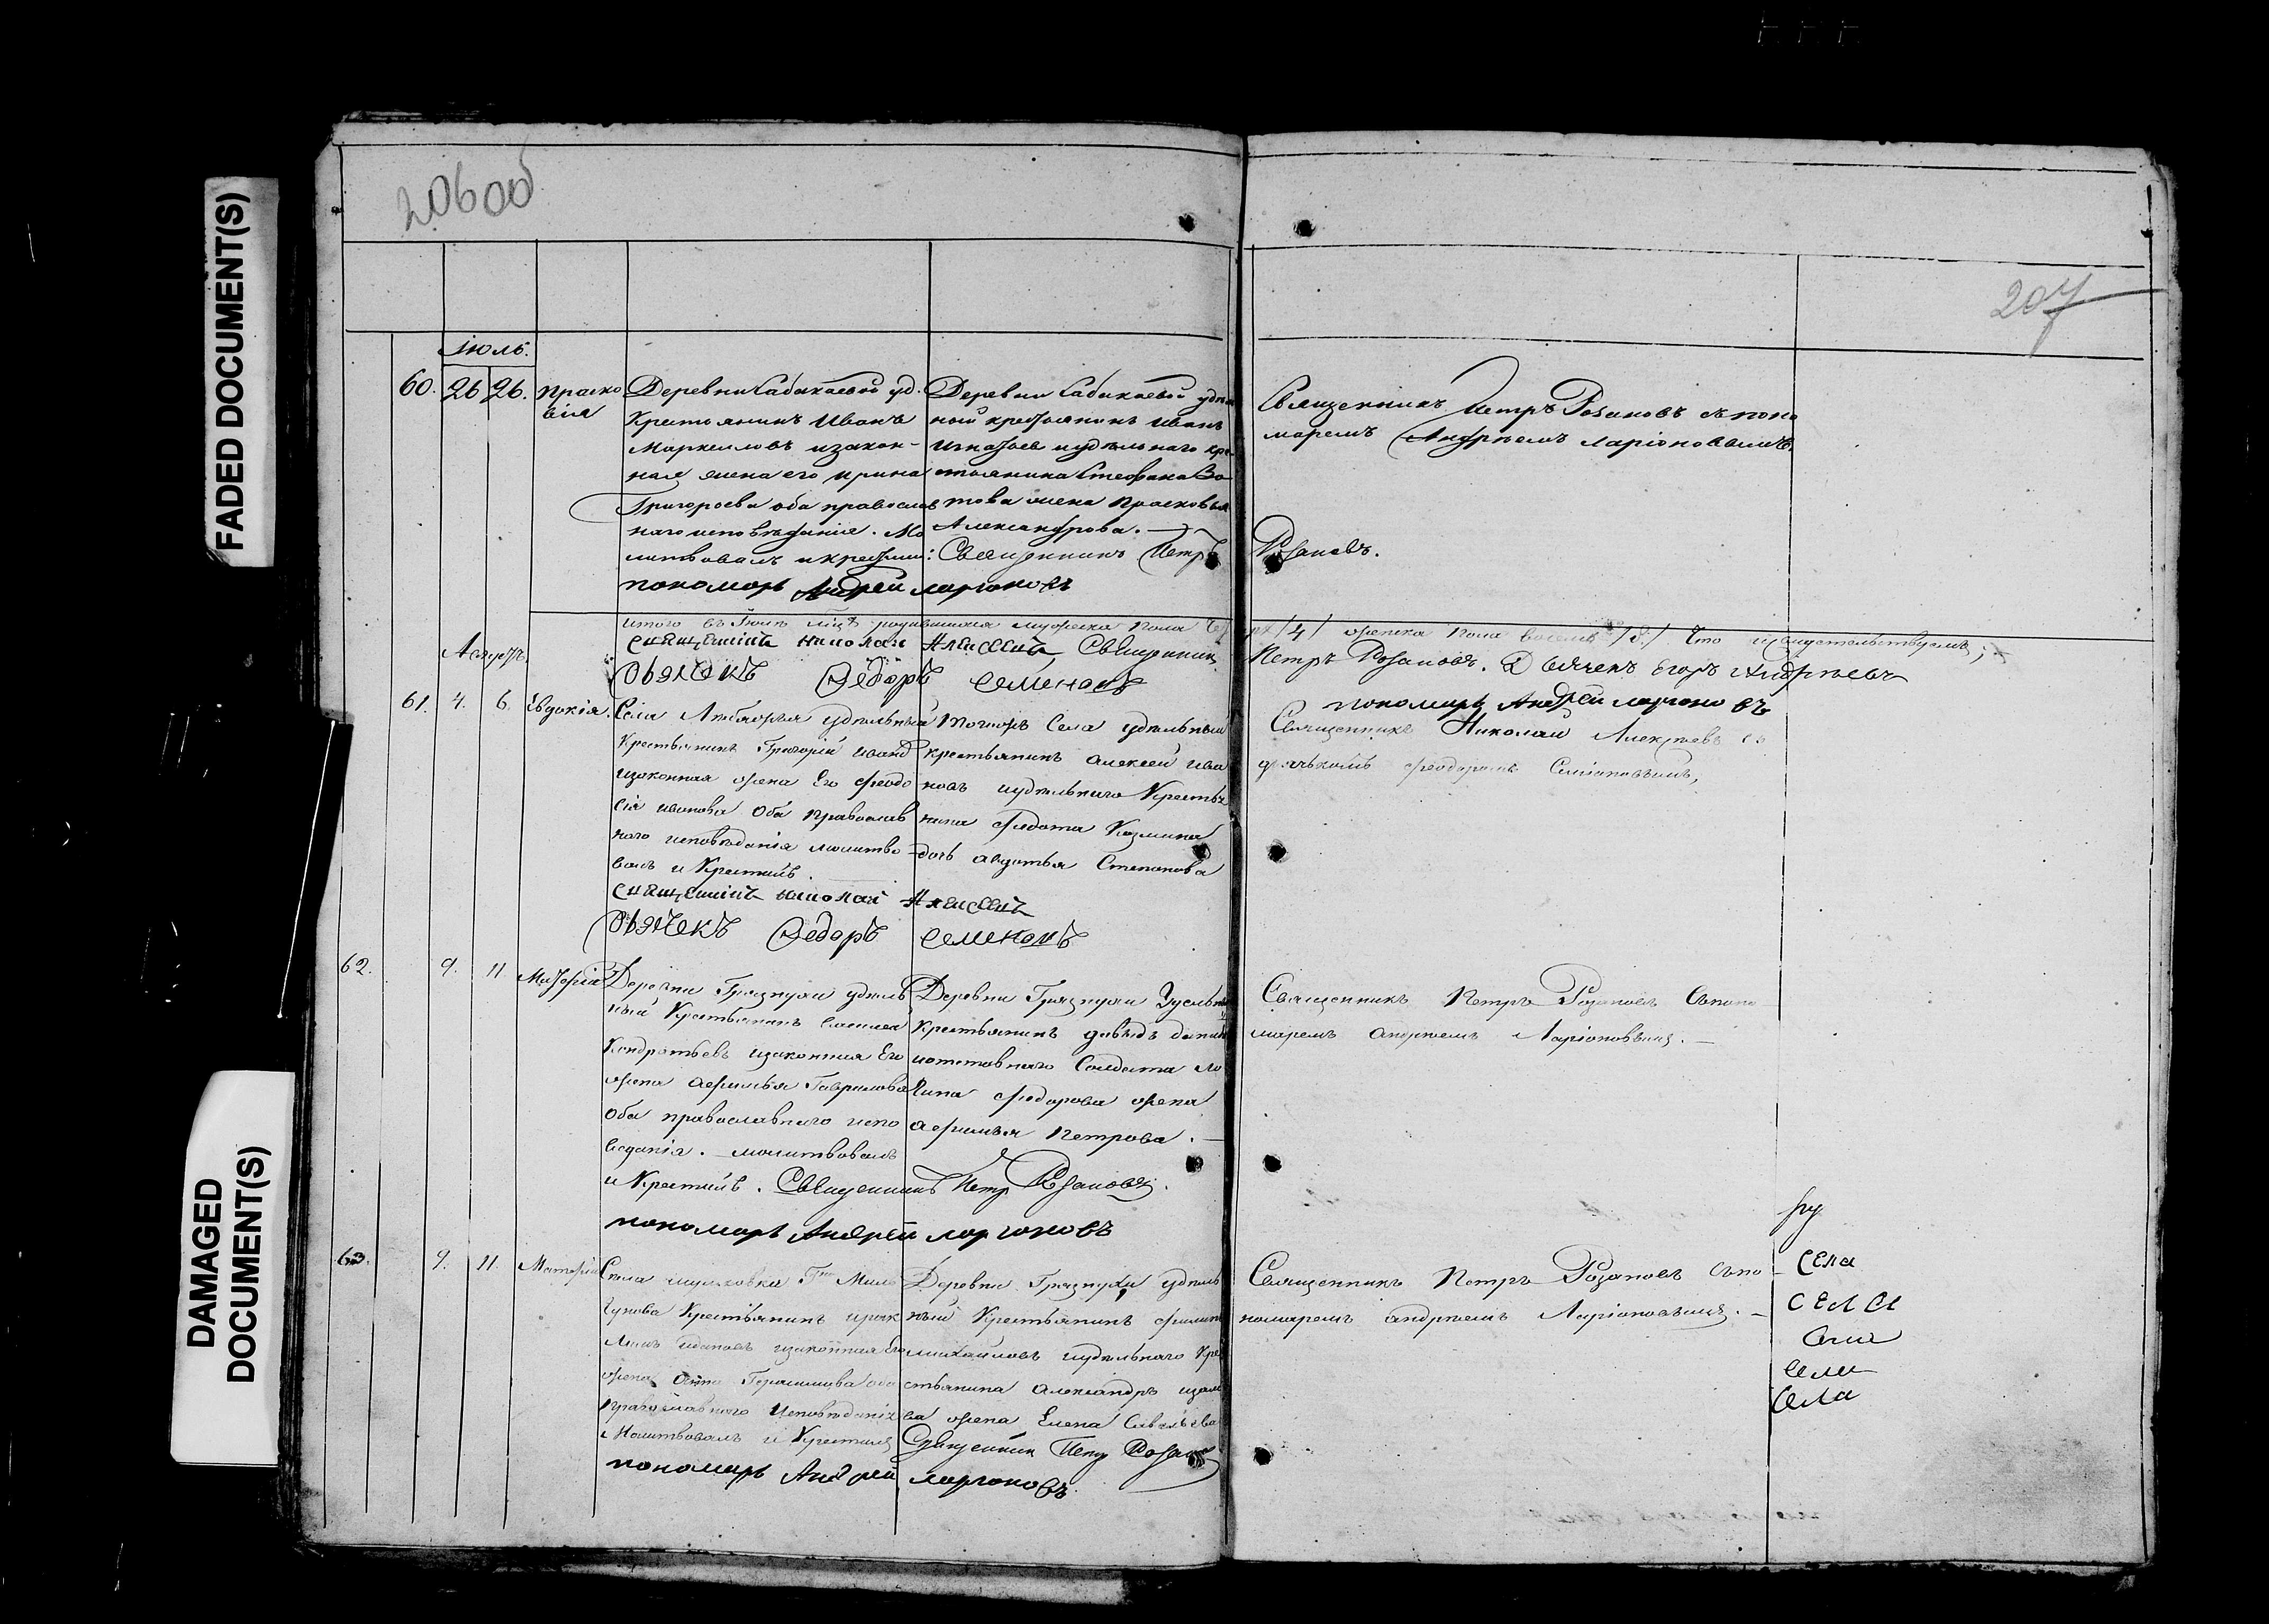 FADED DOCUMENT(S)
DAMAGED
DOCUMENT(S)
206об
207
Июль.
60. 26 26. Праско
вія
Деревни Сабакаевой уд.
Крестьянинъ Иванъ
Маркеловъ и закон-
ная жена его Ирина
Григорьева оба православ
наго исповѣданія. Мо
литвовалъ и крестилъ: Священникъ Петръ Розановъ.
пономарь Андрей Ларіоновъ
Деревни Сабакаевой удѣль
ной крестьянинъ Иванъ
Игнатьев и удѣльнаго кре
стьянина Стефана
това жена Прасковья
Александрова.
Священникъ Петръ Розановъ съ поно
маремъ Андреемъ Ларіоновымъ.
Итого въ Іюлѣ м-цѣ родившихся мужеска пола /4/ женска пола восемь /8/ Что и свидетельствуемъ;
священникъ николай Алексеевъ Священникъ Петръ Розановъ. Дьяченъ Егоръ Андреевъ
дьячекъ Ѳедоръ Семеновъ
пономарь Андрей ларіоновъ
Августъ.
61. 4. 6. Евдокія.
Села удѣльный
Крестьянинъ Григорій Иванов
и законная жена Его Феодо
сія Иванова оба православ
наго исповѣданія молитво
валъ и Крестилъ.
Тогожъ Села удѣльный
крестьянинъ Алексей Ива
новъ и удѣльнаго Крестья
нина Федота Козмина
дочь Авдотья Степанова
Священникъ Николай Алексѣевъ съ
дьячкомъ Феодоромъ Семіоновымъ,
священникъ николай Алексеевъ
дьячекъ Ѳедоръ семеновъ
62. 9. 11.
Деревни Грязнухи удѣль
ный Крестьянинъ
Кондратьевъ и законная Его
жена Афимья Гаврилова
Оба православнаго испо
веданія. молитвовалъ
и Крестилъ. Священникъ Петр Розановъ.
пономарь Андрей ларіоновъ
Деревни Грязнухи Удельный
Крестьянинъ Давыдъ
и отставнаго Солдата Ло
гина Федорова жена
Афимья Петрова.
Священникъ Петръ Розановъ съ поно
маремъ Андреемъ Ларіоновымъ.
63. 9. 11.
Крестьянинъ
Ивановъ и законная Его
жена Анна Герасимова оба
православнаго Исповѣданія
Молитвовалъ и Крестилъ Священник Петр Розановъ
пономарь Андрей ларіоновъ
Деревни Грязнухи удѣль
ный Крестьянинъ Филипъ
Михайловъ и удѣльнаго Кре
стьянина Александръ
ва жена Елена Савельева
Священникъ Петръ Розановъ съ по
номаремъ Андреемъ Ларіоновымъ.
Села
села
Села
Села
Села